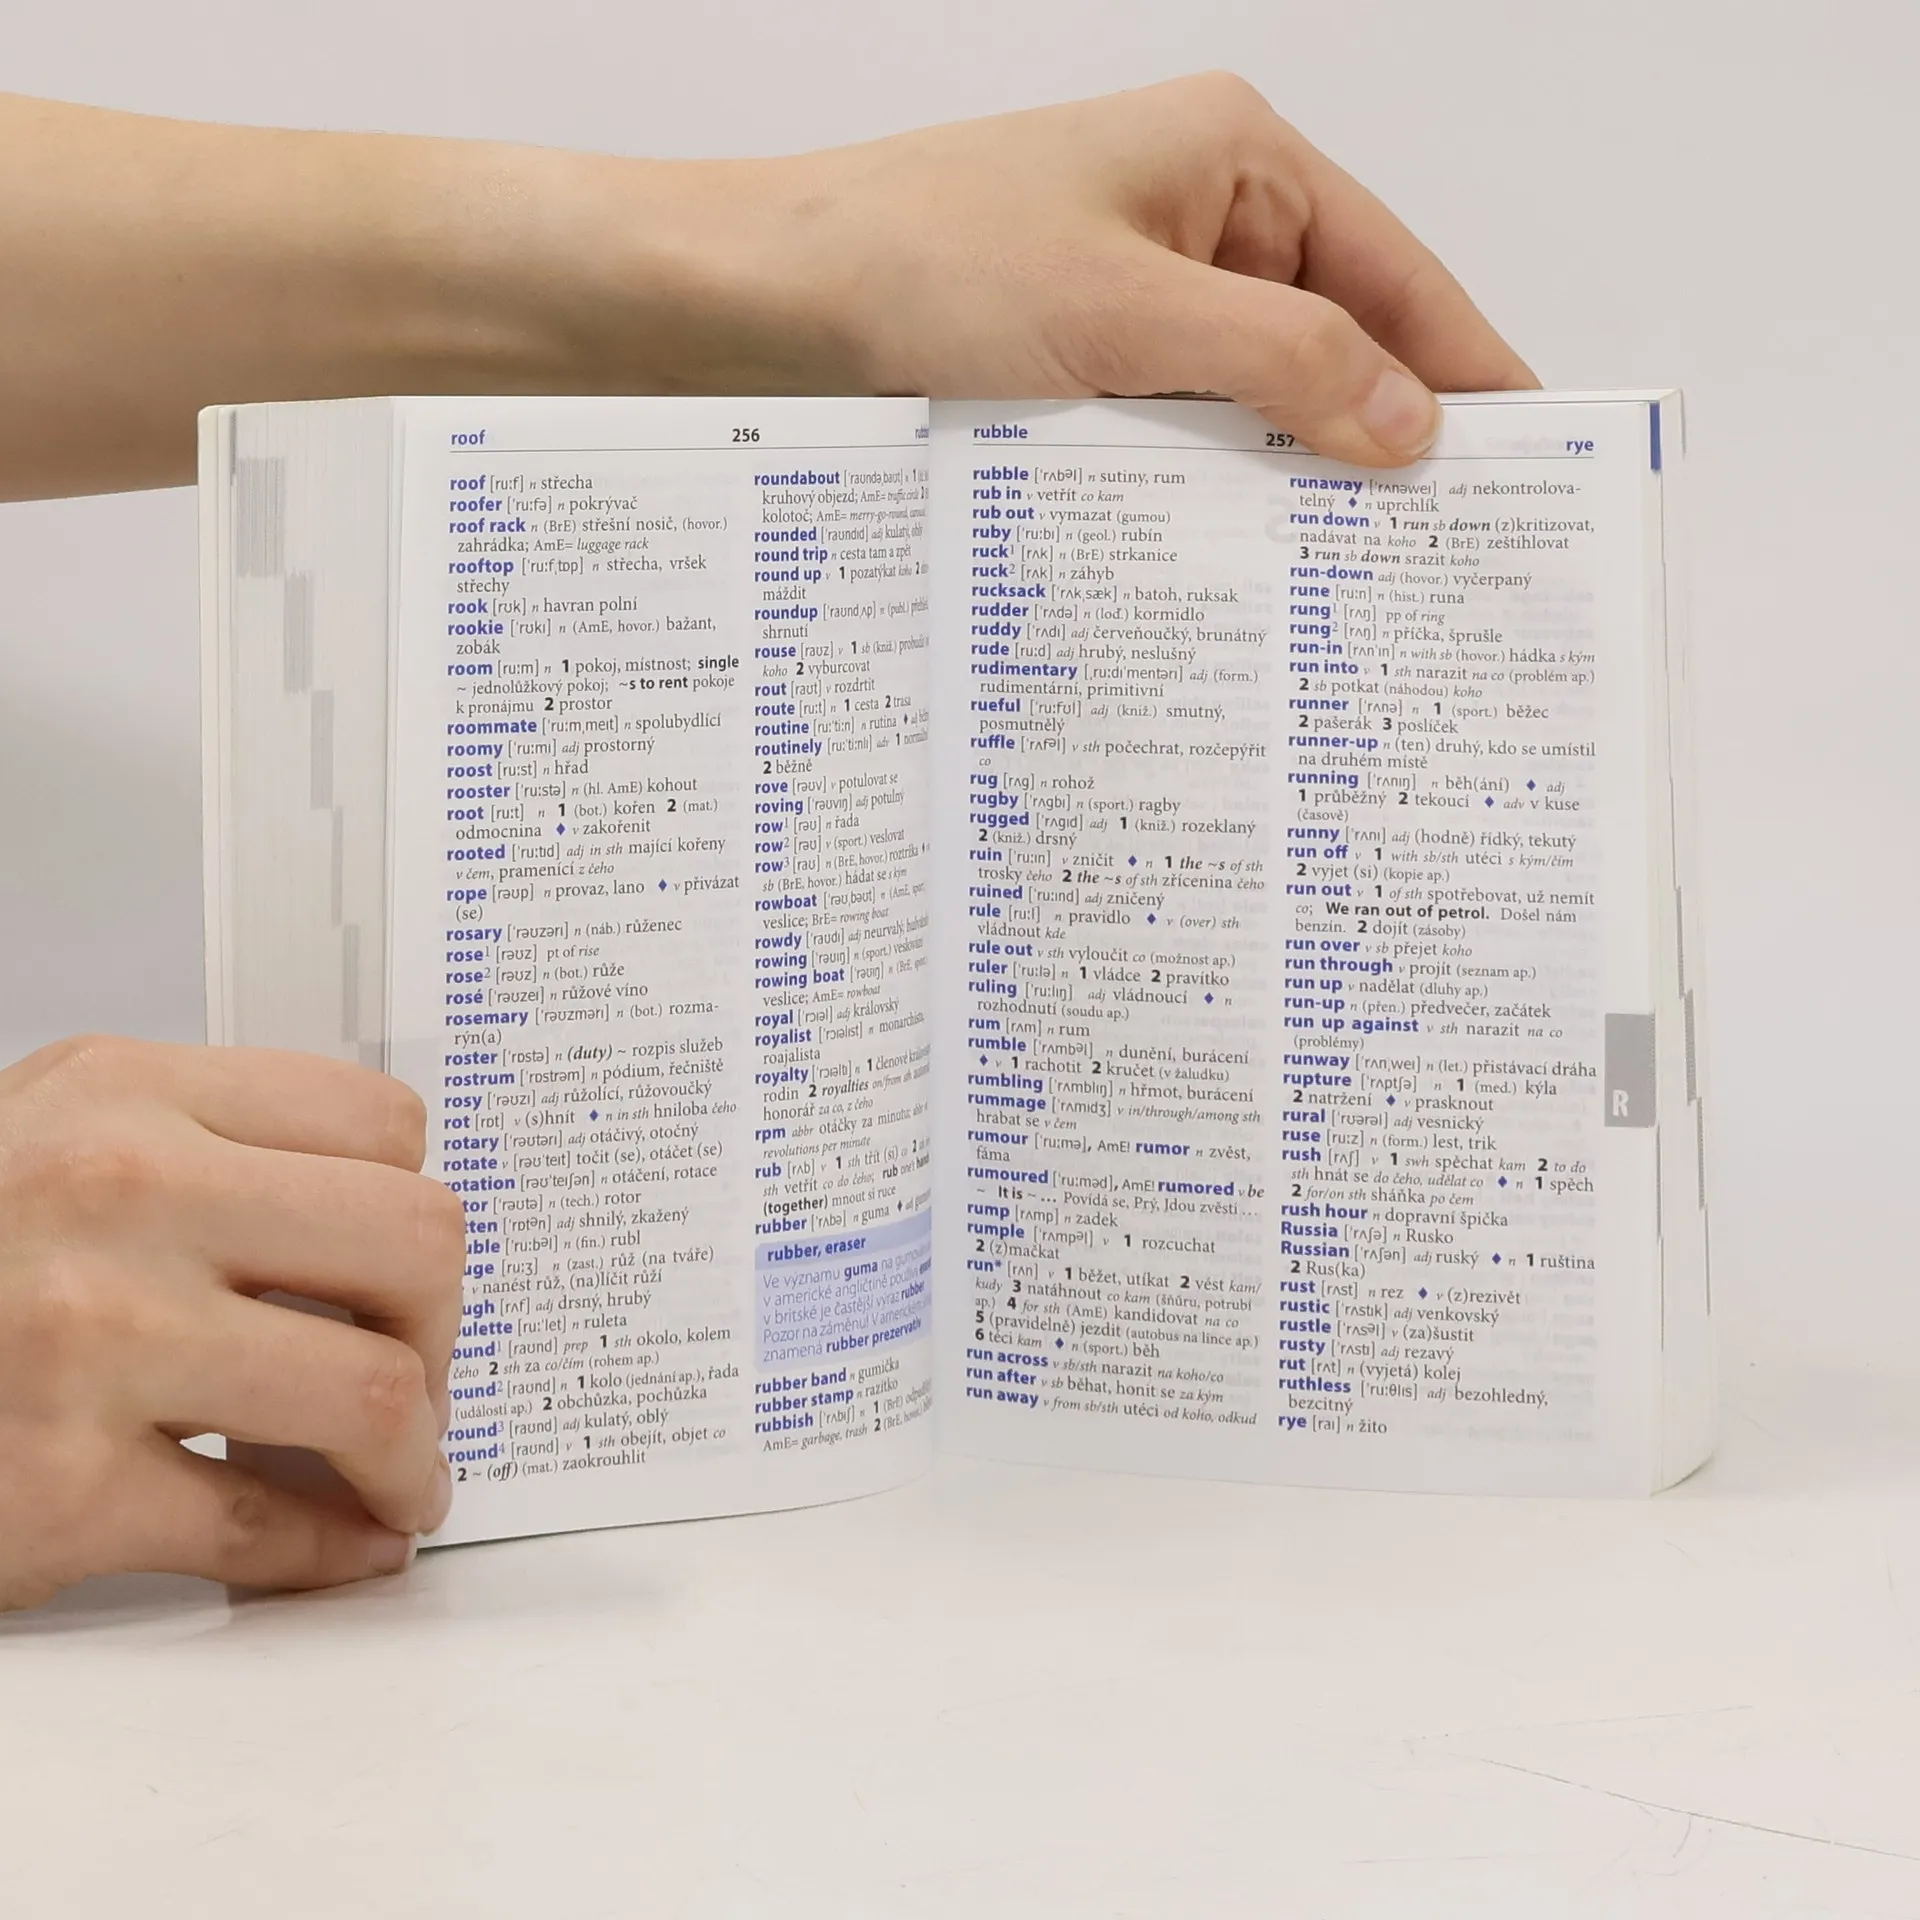 roof
256
roof [ruːf] n střecha
roofer [ˈruːfə] n pokrývač
roof rack n (BrE) střešní nosič, (hovor.)
zahrádka; AmE= luggage rack
rooftop [ˈruːfˌtɒp] n střecha, vršek
střechy
rook [rʊk] n havran polní
rookie [ˈrʊkɪ] n (AmE, hovor.) bažant,
zobák
room [ruːm] n 1 pokoj, místnost; single
~ jednolůžkový pokoj; ~s to rent pokoje
k pronájmu 2 prostor
roommate [ˈruːmˌmeɪt] n spolubydlící
roomy [ˈruːmɪ] adj prostorný
roost [ruːst] n hřad
rooster [ˈruːstə] n (hl. AmE) kohout
root [ruːt] n 1 (bot.) kořen 2 (mat.)
odmocnina ♦ v zakořenit
rooted [ˈruːtɪd] adj in sth mající kořeny
v čem, pramenící z čeho
rope [rəʊp] n provaz, lano ♦ v přivázat
(se)
rosary [ˈrəʊzərɪ] n (náb.) růženec
rose¹ [rəʊz] pt of rise
rose² [rəʊz] n (bot.) růže
rosé [ˈrəʊzeɪ] n růžové víno
rosemary [ˈrəʊzmərɪ] n (bot.) rozma-
rýn(a)
roster [ˈrɒstə] n (duty) ~ rozpis služeb
rostrum [ˈrɒstrəm] n pódium, řečniště
rosy [ˈrəʊzɪ] adj růžolící, růžovoučký
rot [rɒt] v (s)hnít ♦ n in sth hniloba čeho
rotary [ˈrəʊtərɪ] adj otáčivý, otočný
rotate v [rəʊˈteɪt] točit (se), otáčet (se)
rotation [rəʊˈteɪʃən] n otáčení, rotace
tor [ˈrəʊtə] n (tech.) rotor
ten [ˈrɒtən] adj shnilý, zkažený
uble [ˈruːbəl] n (fin.) rubl
uge [ruːʒ] n (zast.) růž (na tváře)
v nanést růž, (na)líčit růží
ugh [rʌf] adj drsný, hrubý
oulette [ruːˈlet] n ruleta
ound¹ [raʊnd] prep 1 sth okolo, kolem
čeho 2 sth za co/čím (rohem ap.)
round² [raʊnd] n 1 kolo (jednání ap.), řada
(událostí ap.) 2 obchůzka, pochůzka
round³ [raʊnd] adj kulatý, oblý
round⁴ [raʊnd] v 1 sth obejít, objet co
2 ~ (off) (mat.) zaokrouhlit
roundabout [ˈraʊndəˌbaʊt] n 1
kruhový objezd; AmE= traffic circle 2
kolotoč; AmE= merry-go-round,
rounded [ˈraʊndɪd] adj kulatý, oblý
round trip n cesta tam a zpět
round up v 1 pozatýkat koho 2
máždit
roundup [ˈraʊndˌʌp] n (publ.)
shrnutí
rouse [raʊz] v 1 sb (kniž.)
koho 2 vyburcovat
rout [raʊt] v rozdrtit
route [ruːt] n 1 cesta 2 trasa
routine [ruːˈtiːn] n rutina ♦ adj
routinely [ruːˈtiːnlɪ] adv 1
2 běžně
rove [rəʊv] v potulovat se
roving [ˈrəʊvɪŋ] adj potulný
row¹ [rəʊ] n řada
row² [rəʊ] v (sport.) veslovat
row³ [raʊ] n (BrE, hovor.) roztržka ♦
sb (BrE, hovor.) hádat se s kým
rowboat [ˈrəʊˌbəʊt] n (AmE,
veslice; BrE= rowing boat
rowdy [ˈraʊdɪ] adj neurvalý,
rowing [ˈrəʊɪŋ] n (sport.) veslování
rowing boat [ˈrəʊɪŋ] n (BrE,
veslice; AmE= rowboat
royal [ˈrɔɪəl] adj královský
royalist [ˈrɔɪəlɪst] n monarchista,
roajalista
royalty [ˈrɔɪəltɪ] n 1 členové
rodin 2 royalties on/from sth
honorář za co, z čeho
rpm abbr otáčky za minutu;
revolutions per minute
rub [rʌb] v 1 sth třít (si) co 2
sth vetřít co do čeho; rub one's
(together) mnout si ruce
rubber [ˈrʌbə] n guma ♦ adj
rubber, eraser
Ve významu guma na
v americké angličtině používá
v britské je častější výraz rubber
Pozor na záměnu! V americké
znamená rubber prezervativ
rubber band n gumička
rubber stamp n razítko
rubbish [ˈrʌbɪʃ] n 1 (BrE)
AmE= garbage, trash 2 (BrE, hovor.)
rubble
257
rye
rubble [ˈrʌbəl] n sutiny, rum
rub in v vetřít co kam
rub out v vymazat (gumou)
ruby [ˈruːbɪ] n (geol.) rubín
ruck¹ [rʌk] n (BrE) strkanice
ruck² [rʌk] n záhyb
rucksack [ˈrʌkˌsæk] n batoh, ruksak
rudder [ˈrʌdə] n (loď.) kormidlo
ruddy [ˈrʌdɪ] adj červeňoučký, brunátný
rude [ruːd] adj hrubý, neslušný
rudimentary [ˌruːdɪˈmentərɪ] adj (form.)
rudimentární, primitivní
rueful [ˈruːfʊl] adj (kniž.) smutný,
posmutnělý
ruffle [ˈrʌfəl] v sth počechrat, rozčepýřit
co
rug [rʌg] n rohož
rugby [ˈrʌgbɪ] n (sport.) ragby
rugged [ˈrʌgɪd] adj 1 (kniž.) rozeklaný
2 (kniž.) drsný
ruin [ˈruːɪn] v zničit ♦ n 1 the ~s of sth
trosky čeho 2 the ~s of sth zřícenina čeho
ruined [ˈruːɪnd] adj zničený
rule [ruːl] n pravidlo ♦ v (over) sth
vládnout kde
rule out v sth vyloučit co (možnost ap.)
ruler [ˈruːlə] n 1 vládce 2 pravítko
ruling [ˈruːlɪŋ] adj vládnoucí ♦ n
rozhodnutí (soudu ap.)
rum [rʌm] n rum
rumble [ˈrʌmbəl] n dunění, burácení
♦ v 1 rachotit 2 kručet (v žaludku)
rumbling [ˈrʌmblɪŋ] n hřmot, burácení
rummage [ˈrʌmɪdʒ] v in/through/among sth
hrabat se v čem
rumour [ˈruːmə], AmE! rumor n zvěst,
fáma
rumoured [ˈruːməd], AmE! rumored v be
~ It is ~ … Povídá se, Prý, Jdou zvěsti …
rump [rʌmp] n zadek
rumple [ˈrʌmpəl] v 1 rozcuchat
2 (z)mačkat
run* [rʌn] v 1 běžet, utíkat 2 vést kam/
kudy 3 natáhnout co kam (šňůru, potrubí
ap.) 4 for sth (AmE) kandidovat na co
5 (pravidelně) jezdit (autobus na lince ap.)
6 téci kam ♦ n (sport.) běh
run across v sb/sth narazit na koho/co
run after v sb běhat, honit se za kým
run away v from sb/sth utéci od koho, odkud
runaway [ˈrʌnəweɪ] adj nekontrolova-
telný ♦ n uprchlík
run down v 1 run sb down (z)kritizovat,
nadávat na koho 2 (BrE) zeštíhlovat
3 run sb down srazit koho
run-down adj (hovor.) vyčerpaný
rune [ruːn] n (hist.) runa
rung¹ [rʌŋ] pp of ring
rung² [rʌŋ] n příčka, šprušle
run-in [ˈrʌnˈɪn] n with sb (hovor.) hádka s kým
run into v 1 sth narazit na co (problém ap.)
2 sb potkat (náhodou) koho
runner [ˈrʌnə] n 1 (sport.) běžec
2 pašerák 3 poslíček
runner-up n (ten) druhý, kdo se umístil
na druhém místě
running [ˈrʌnɪŋ] n běh(ání) ♦ adj
1 průběžný 2 tekoucí ♦ adv v kuse
(časově)
runny [ˈrʌnɪ] adj (hodně) řídký, tekutý
run off v 1 with sb/sth utéci s kým/čím
2 vyjet (si) (kopie ap.)
run out v 1 of sth spotřebovat, už nemít
co; We ran out of petrol. Došel nám
benzín. 2 dojít (zásoby)
run over v sb přejet koho
run through v projít (seznam ap.)
run up v nadělat (dluhy ap.)
run-up n (přen.) předvečer, začátek
run up against v sth narazit na co
(problémy)
runway [ˈrʌnˌweɪ] n (let.) přistávací dráha
rupture [ˈrʌptʃə] n 1 (med.) kýla
2 natržení ♦ v prasknout
rural [ˈrʊərəl] adj vesnický
ruse [ruːz] n (form.) lest, trik
rush [rʌʃ] v 1 swh spěchat kam 2 to do
sth hnát se do čeho, udělat co ♦ n 1 spěch
2 for/on sth sháňka po čem
rush hour n dopravní špička
Russia [ˈrʌʃə] n Rusko
Russian [ˈrʌʃən] adj ruský ♦ n 1 ruština
2 Rus(ka)
rust [rʌst] n rez ♦ v (z)rezivět
rustic [ˈrʌstɪk] adj venkovský
rustle [ˈrʌsəl] v (za)šustit
rusty [ˈrʌstɪ] adj rezavý
rut [rʌt] n (vyjetá) kolej
ruthless [ˈruːθlɪs] adj bezohledný,
bezcitný
rye [raɪ] n žito
R